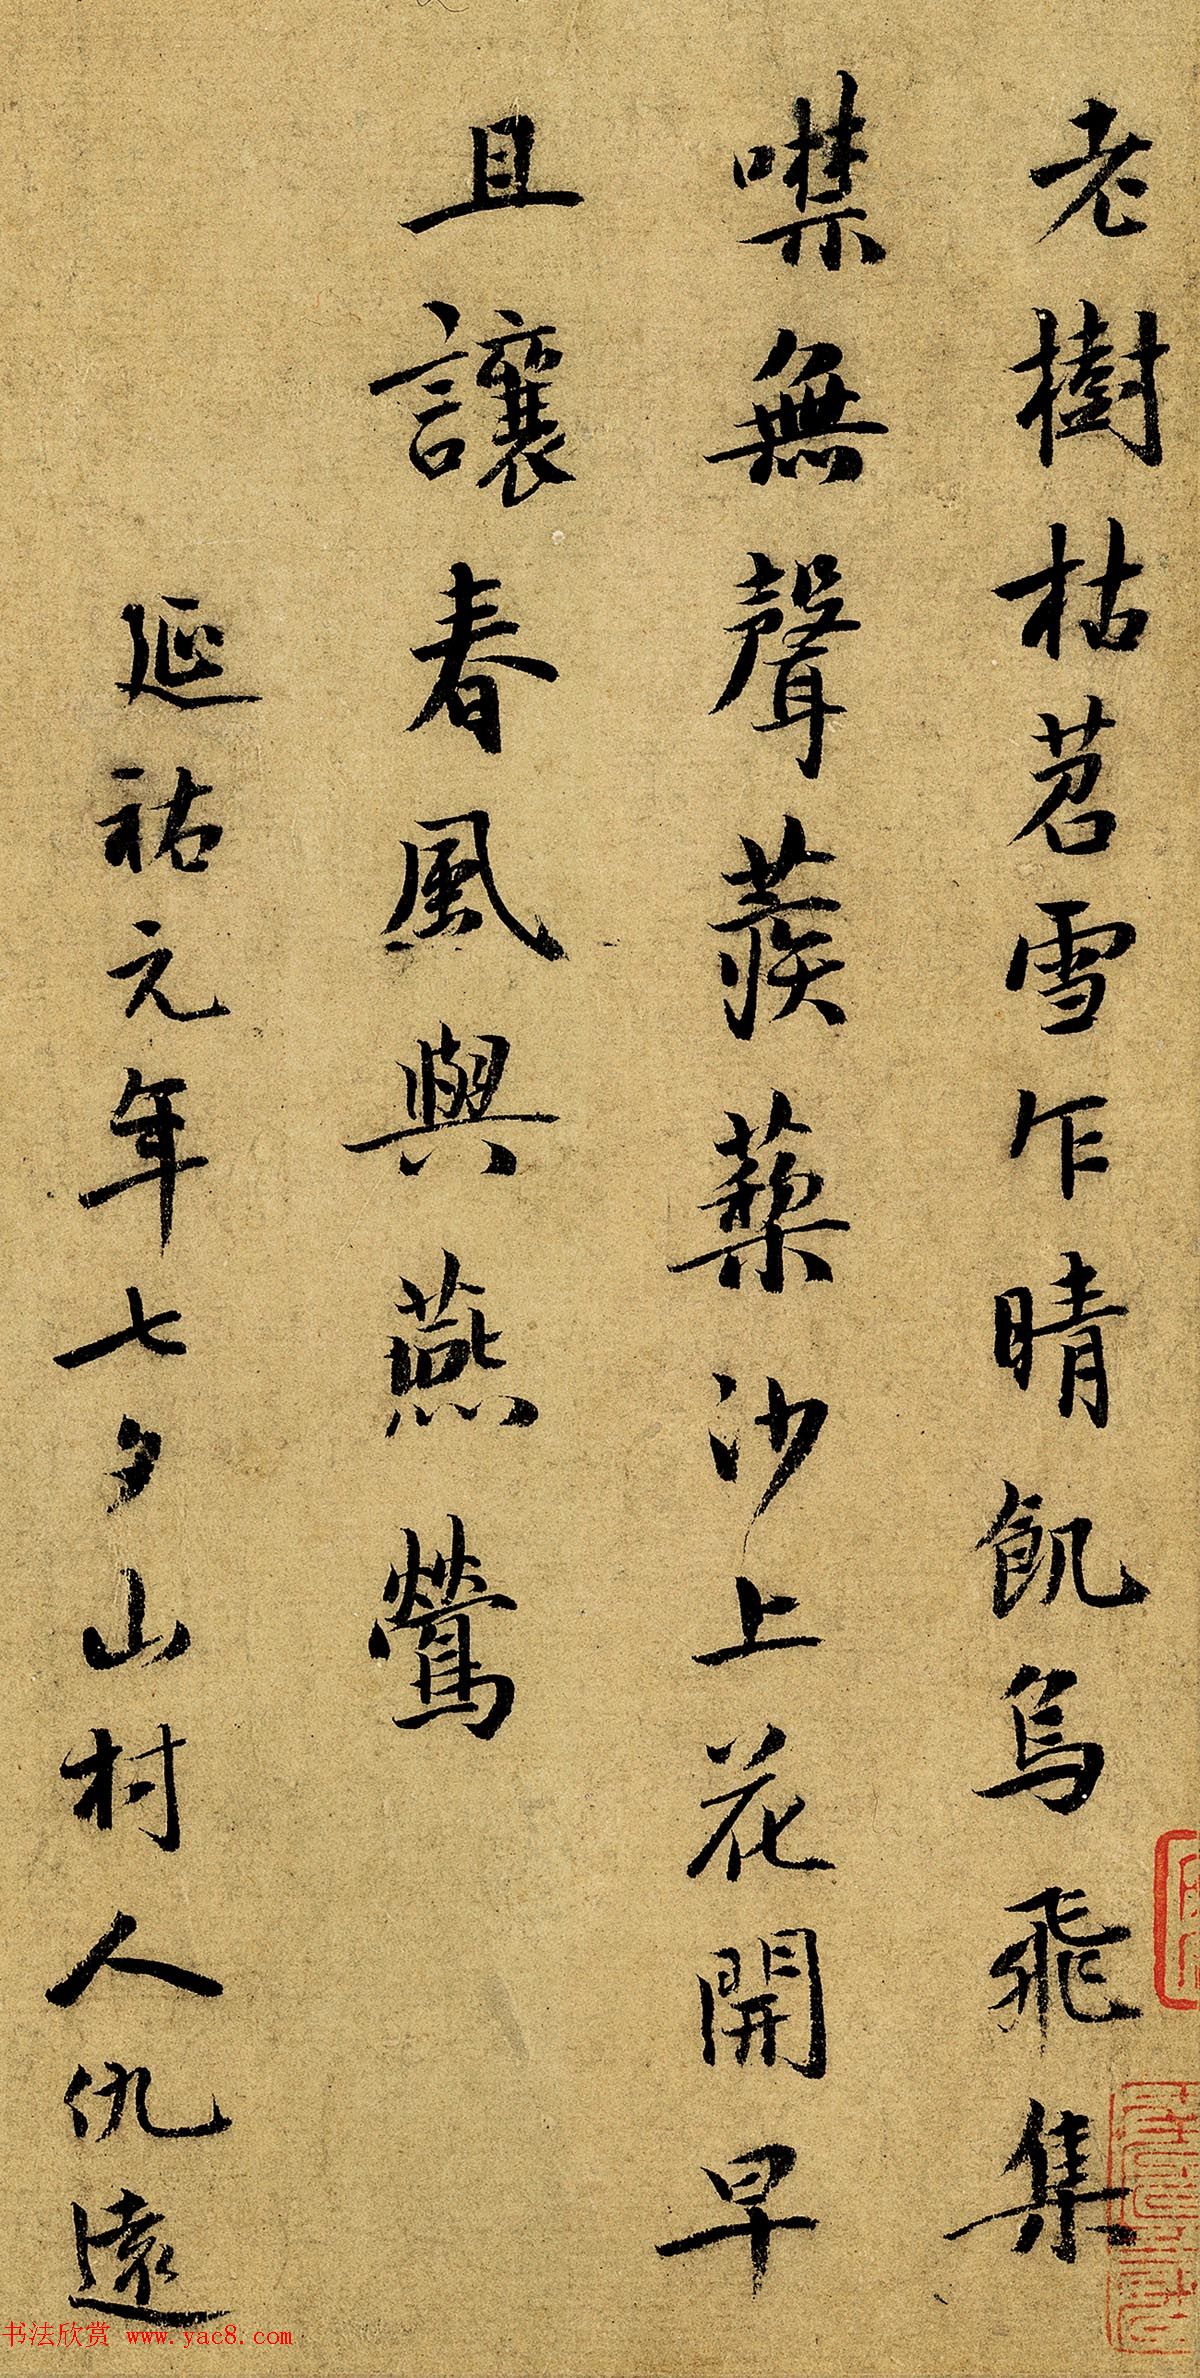 老樹枯苕雪乍晴飢烏飛集
噤無聲蒺藜沙上花開早
且讓春風與燕鶯
延祐元年七夕山村人仇遠
书法欣赏 www.yac8.com